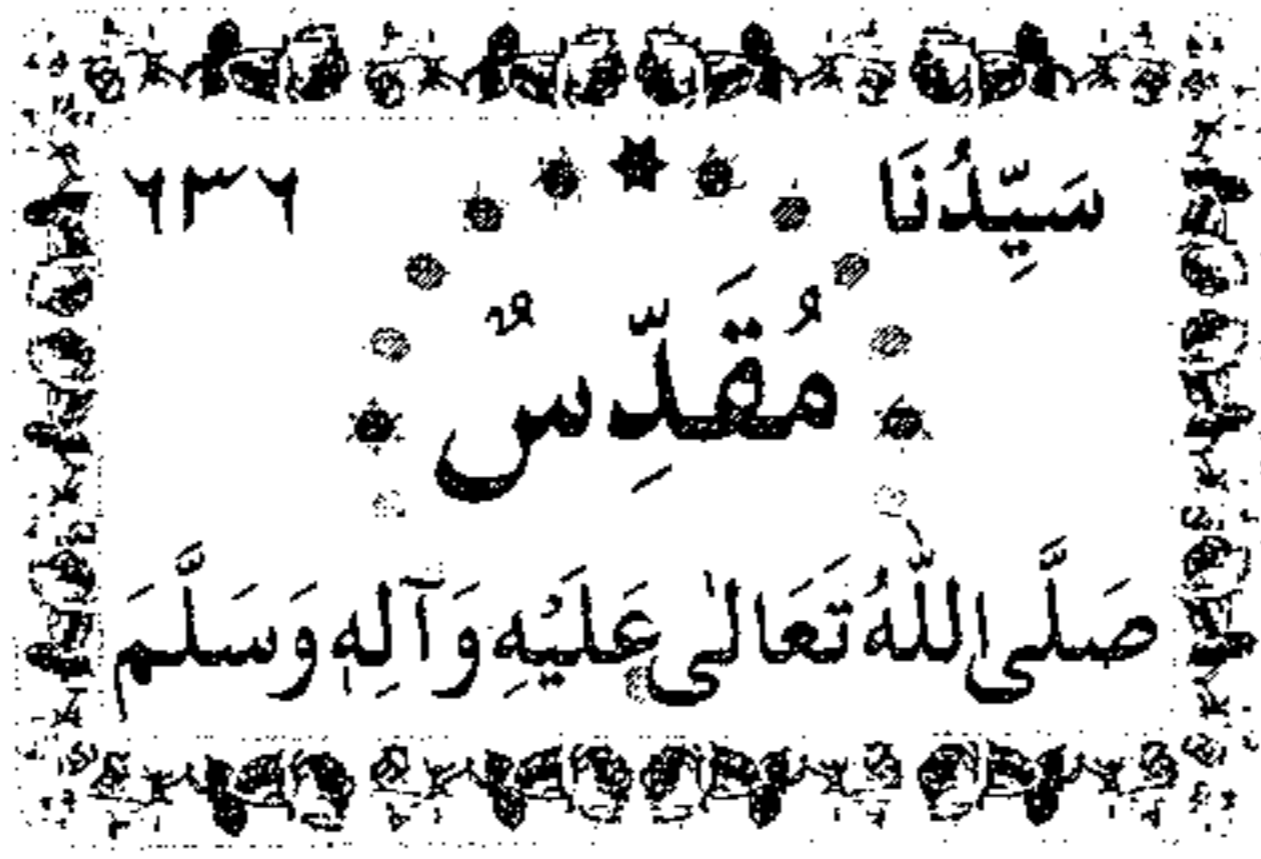 سَيِّدُنَا ٦٣٦
مُقَدِّسٌ
صَلَّى اللّٰهُ تَعَالٰى عَلَيْهِ وَآلِهٖ وَسَلَّمَ